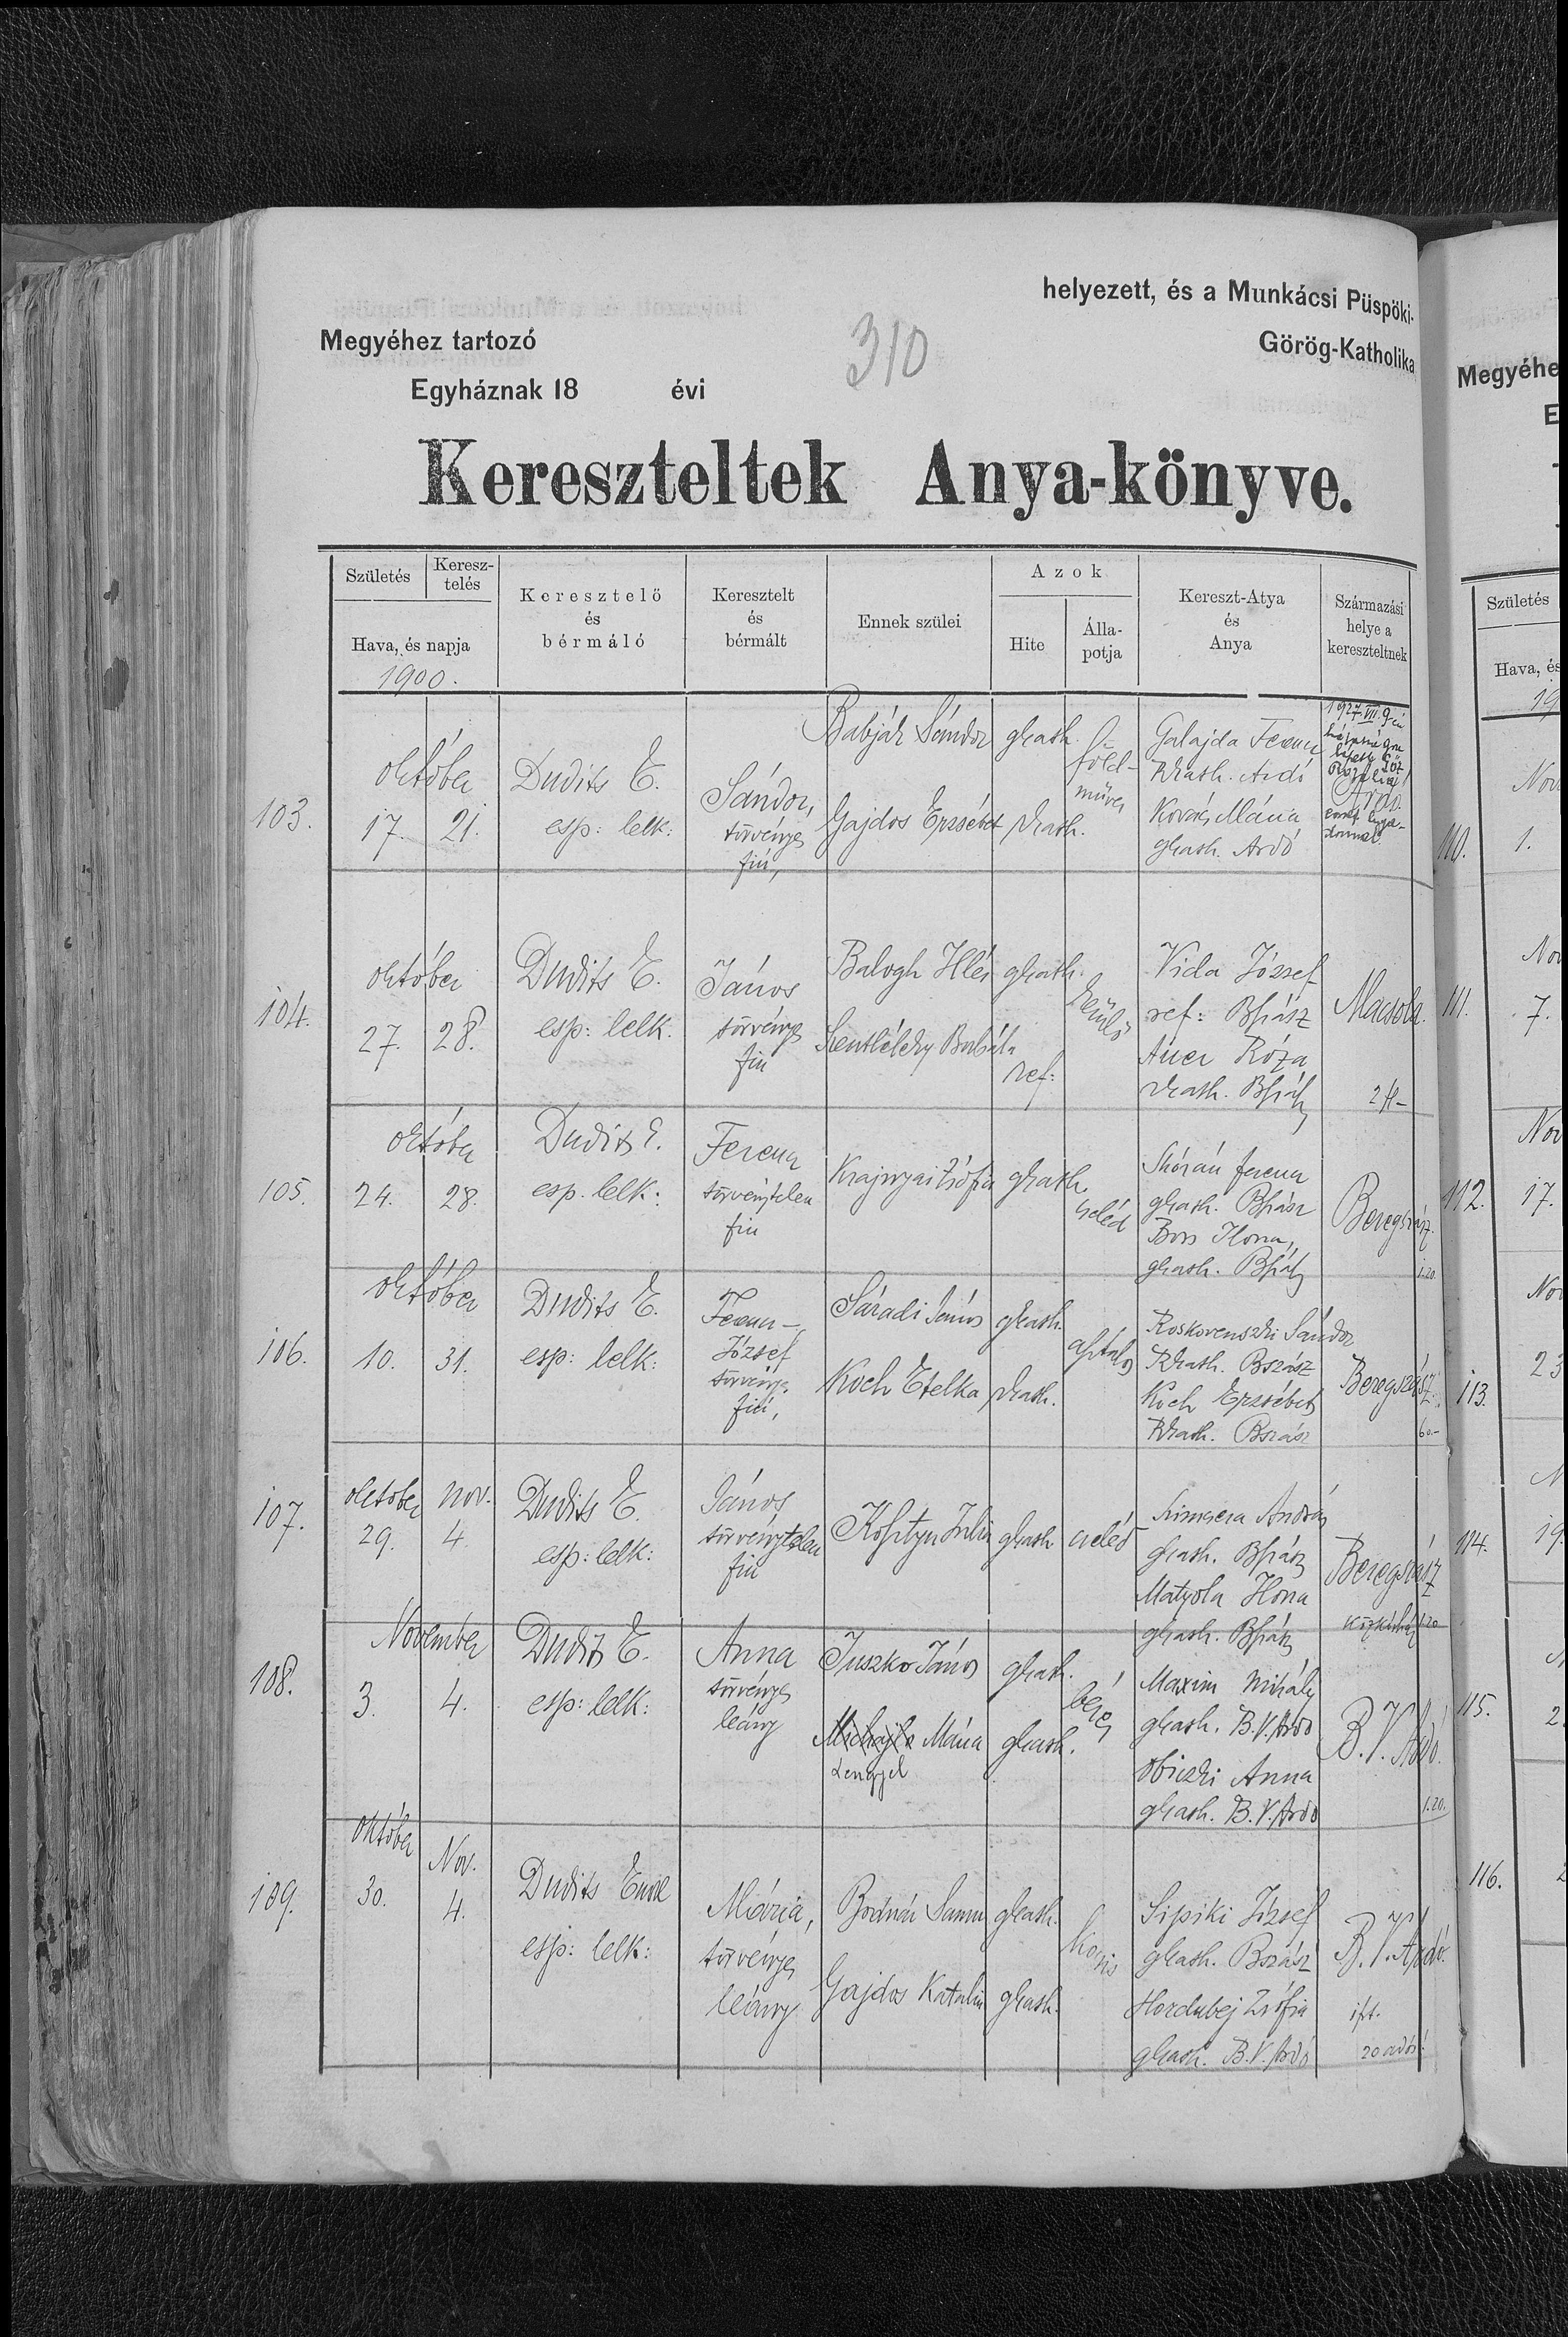 helyezett, és a Munkácsi Püspöki-
Megyéhez tartozó
310
Görög-Katholika
Egyháznak 18 évi
Kereszteltek Anya-könyve.
Születés
Keresz-
telés
Hava, és napja
1900.
Keresztelő
és
bérmáló
Keresztelt
és
bérmált
Ennek szülei
Azok
Hite
Álla-
potja
Kereszt-Atya
és
Anya
Származási
helye a
kereszteltnek
103.
október
17. 21.
Dudits E.
esp: lelk:
Sándor,
törvényes
fiú,
Babják Sándor gkath.
Gajdos Erzsébet rkath.
föld-
műves
Galajda Ferenc
Rkath. Ardó
Kovács Mária
gkath. Ardó
1927.VII.9-én
házasságra
lépett
104.
október
27. 28.
Dudits E.
esp: lelk.
János
törvényes
fiú
Balogh Illés gkath.
ref:
Vida József
ref: Bszász
Auer Róza
rkath. Bszász
Macsola.
105.
október
24. 28.
Dudits E.
esp. lelk:
Ferenc
törvénytelen
fiu
Krajnyai Zsófia gkath.
cseléd
Ferenc
gkath. Bszász
Bors Ilona,
gkath. Bszász
Beregszász.
1.20.
106.
október
10. 31.
Dudits E.
esp: lelk:
Ferenc-
József
törvényes
fiú,
Sáradi János gkath.
Koch Etelka rkath.
asztalos
Roskovenszki Sándor
Rkath. Bszász
Koch Erzsébet
Rkath. Bszász
Beregszász.
60.-
107.
október nov.
29. 4.
Dudits E.
esp: lelk:
János
törvénytelen
fiu
Kosztyu Julia gkath cseléd
András
gkath. Bszász
Matyola Ilona
gkath. Bszász
Beregszász
közkórház 1.20
108.
November
3. 4.
Dudits E.
esp: lelk:
Anna
törvényes
leány
Juszko János gkath.
Michajlo Mária gkath.
Lengyel
béres
Maxim Mihály
gkath. B.V.Ardo
Obiczki Anna
gkath. B.V.Ardo
B.V.Ardó.
1.20.
109.
október
30.
Nov.
4.
Dudits Emil
esp: lelk:
Mária,
törvényes
leány
Bodnár Samu gkath.
Gajdos Katalin gkath.
kocsis
Sipiki József
gkath. Bszász
Hordubej Zsófia
gkath. B.V.Ardó
B.V.Ardó.
1ft.
20 adós!
Megyéhe
E
Születés
Hava, és
19
110.
Nov
1.
111.
Nov
7.
112.
Nov
17.
113.
Nov
23
114.
N
19
115.
2.
116.